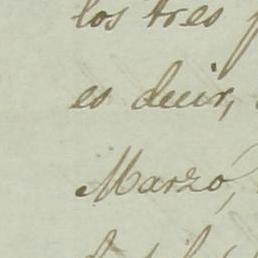 los tres
es decir,
Marzó,